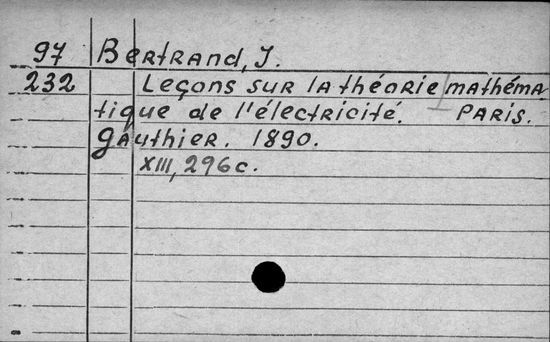 97 Bertrand, J.
232 Leçons sur la théorie mathéma
tique de l'électricité. Paris.
Gauthier. 1890.
XIII, 296 c.